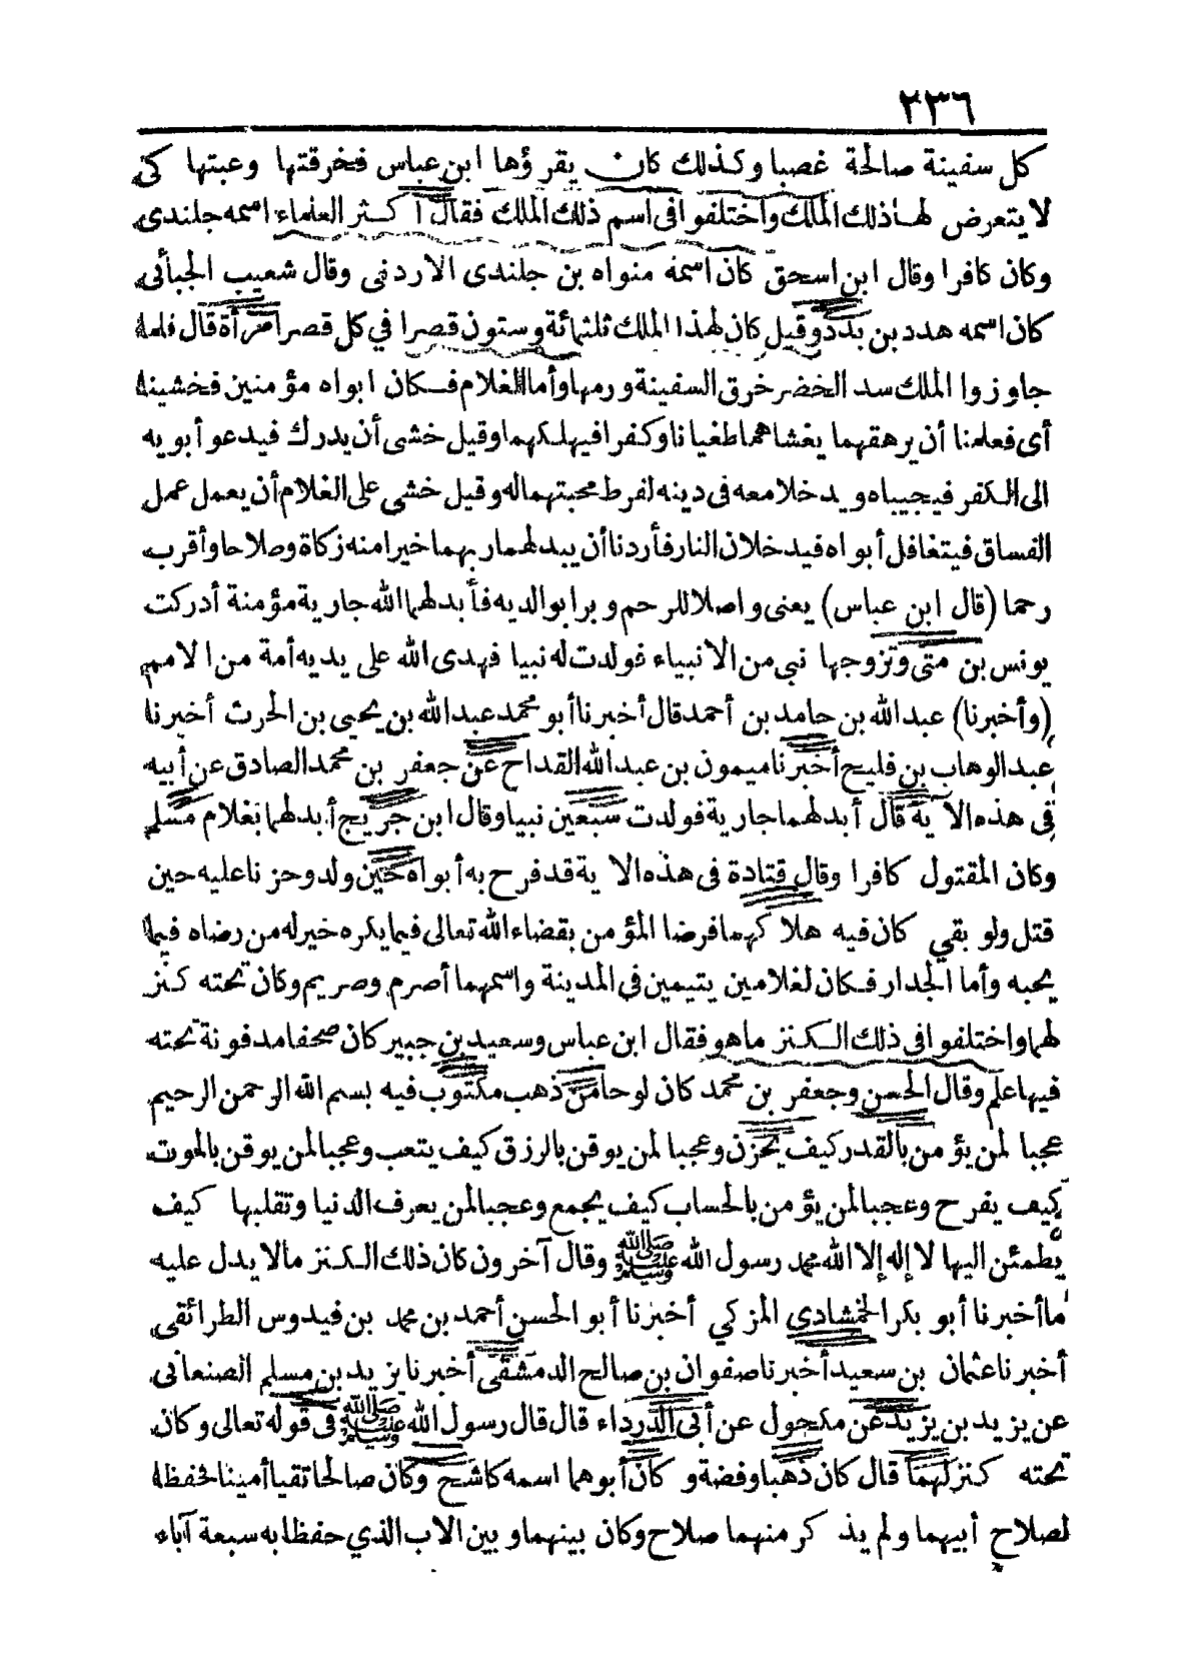 ٢٣٦
كل سفينة صالحة غصبا وكذلك كان يقرؤها ابن عباس فخرقتها وعبتها كى
لا يتعرض لها ذلك الملك واختلفوا فى اسم ذلك الملك فقال أكثر العلماء اسمه جلندى
وكان كافرا وقال ابن اسحق كان اسمه منواه بن جلندى الاردنى وقال شعيب الجبأئى
كان اسمه هدد بن بدد وقيل كان لهذا الملك ثلثمائة وستون قصرا في كل قصر امرأة قال فلما
جاوزوا الملك سد الخضر خرق السفينة ورمها وأما الغلام فكان ابواه مؤمنين فخشينا
أى فعلمنا أن يرهقهما يغشاهما طغيانا وكفرا فيهلكهما وقيل خشى أن يدرك فيدعو أبويه
الى الكفر فيجيباه ويدخلا معه فى دينه لفرط محبتهما له وقيل خشى على الغلام أن يعمل عمل
الفساق فيتغافل أبواه فيدخلان النار فأردنا أن يبدلهما ربهما خيرا منه زكاة وصلاحا وأقرب
رحما (قال ابن عباس) يعنى واصلا للرحم وبرا بوالديه فأبدلهما الله جارية مؤمنة أدركت
يونس بن متى وتزوجها نبي من الانبياء فولدت له نبيا فهدى الله على يديه أمة من الامم
(وأخبرنا) عبد الله بن حامد بن أحمد قال أخبرنا أبو محمد عبد الله بن يحيى بن الحرث أخبرنا
عبد الوهاب بن فليح أخبرنا ميمون بن عبد الله القداح عن جعفر بن محمد الصادق عن أبيه
فى هذه الآية قال أبدلهما جارية فولدت سبعين نبيا وقال ابن جريج أبدلهما بغلام مسلم
وكان المقتول كافرا وقال قتادة فى هذه الآية قد فرح به أبواه حين ولد وحزنا عليه حين
قتل ولو بقي كان فيه هلاكهما فرضا المؤمن بقضاء الله تعالى فيما يكره خير له من رضاه فيما
يحبه وأما الجدار فكان لغلامين يتيمين في المدينة واسمهما أصرم وصريم وكان تحته كنز
لهما واختلفوا فى ذلك الكنز ما هو فقال ابن عباس وسعيد بن جبير كان صحفا مدفونة تحته
فيها علم وقال الحسن وجعفر بن محمد كان لوحا من ذهب مكتوب فيه بسم الله الرحمن الرحيم
عجبا لمن يؤمن بالقدر كيف يحزن وعجبا لمن يوقن بالرزق كيف يتعب وعجبا لمن يوقن بالموت
كيف يفرح وعجبا لمن يؤمن بالحساب كيف يجمع وعجبا لمن يعرف الدنيا وتقلبها كيف
يطمئن اليها لا إله إلا الله محمد رسول الله ﷺ وقال آخرون كان ذلك الكنز مالا يدل عليه
ما أخبرنا أبو بكر الخمشادى المزكي أخبرنا أبو الحسن أحمد بن محمد بن فيدوس الطرائفى
أخبرنا عثمان بن سعيد أخبرنا صفوان بن صالح الدمشقى أخبرنا يزيد بن مسلم الصنعانى
عن يزيد بن يزيد عن مكحول عن أبى الدرداء قال قال رسول الله ﷺ فى قوله تعالى وكان
تحته كنز لهما قال كان ذهبا وفضة وكان أبوهما اسمه كاشح وكان صالحا تقيا أمينا فحفظا
لصلاح أبيهما ولم يذكر منهما صلاح وكان بينهما وبين الاب الذي حفظا به سبعة آباء